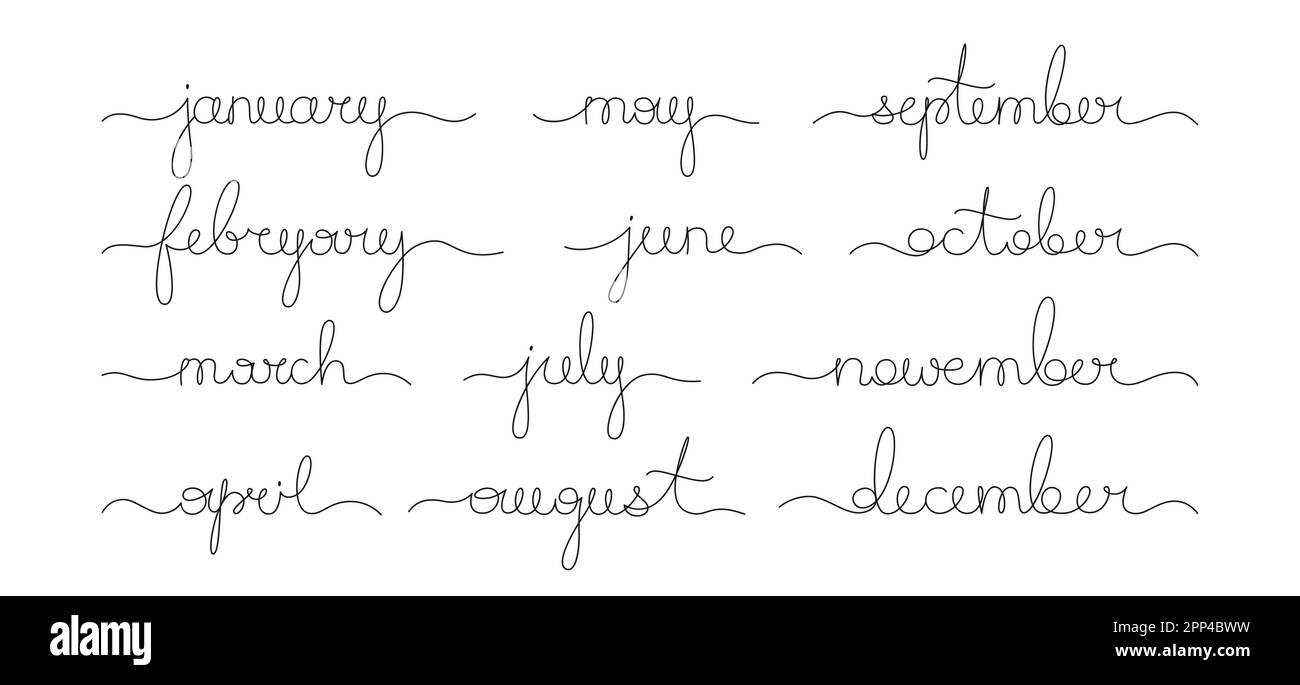 january
may
september
febryary
june
october
march
july
november
april
august
december
alamy
Image ID: 2PP4BWW
www.alamy.com